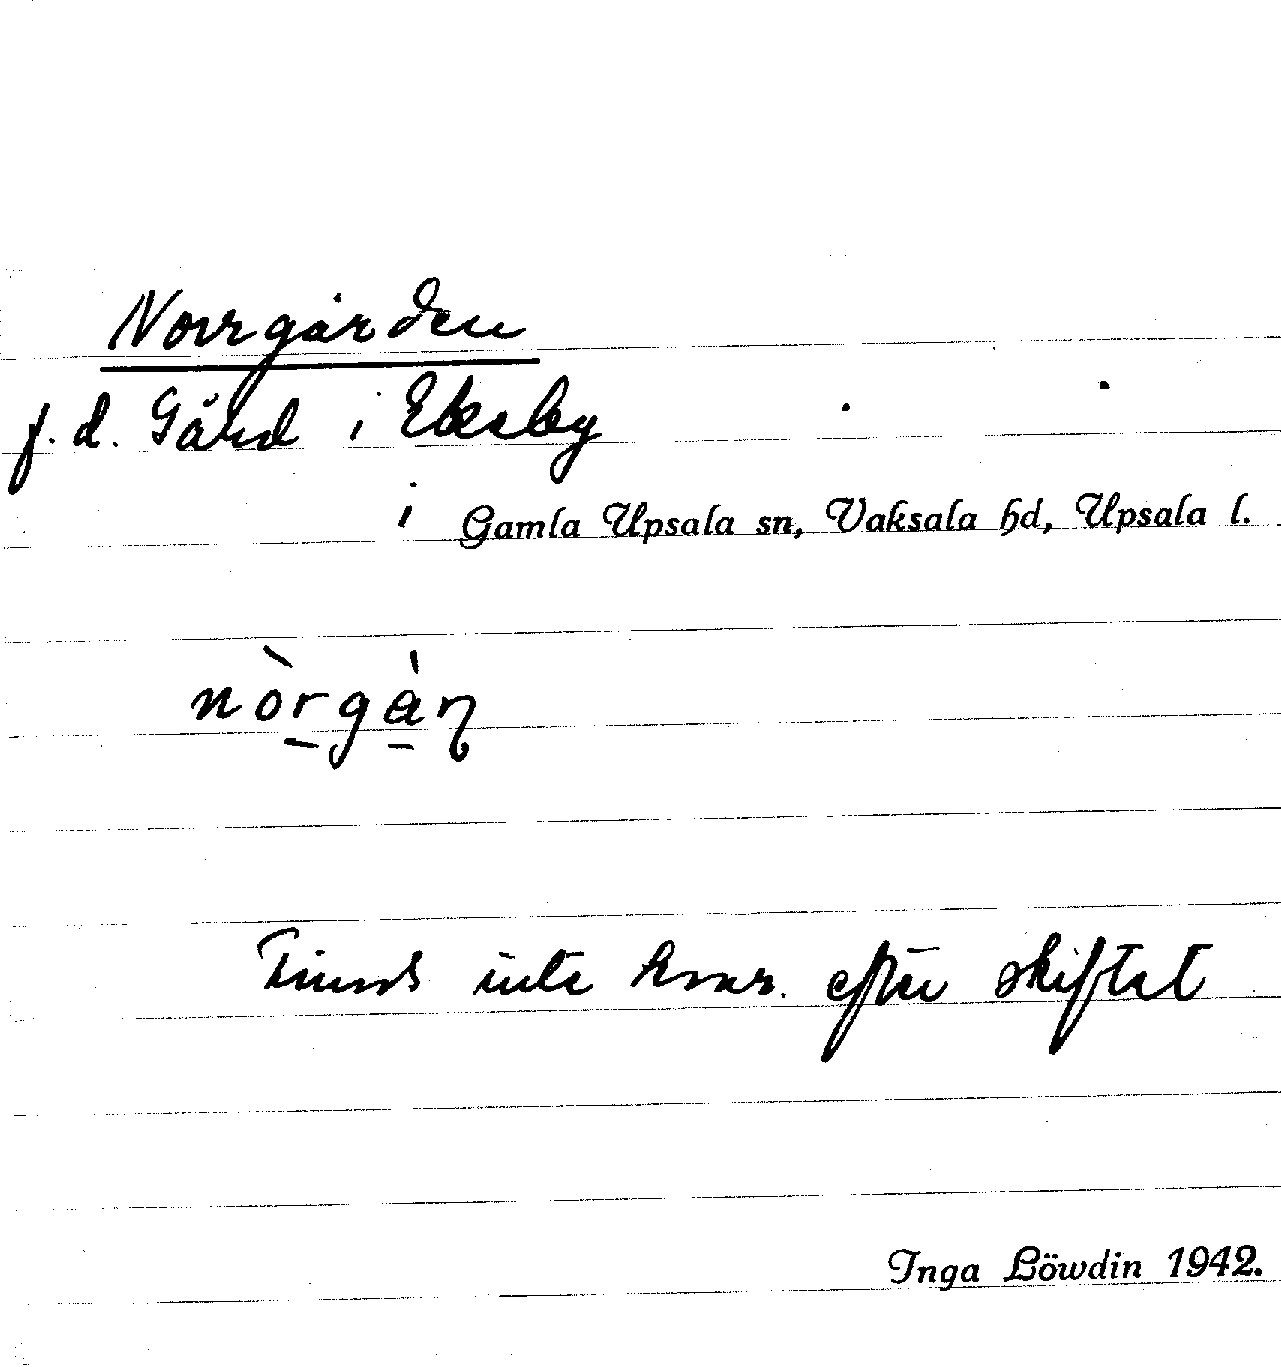 Norrgården
f. d. Gård i Ekeby
i Gamla Upsala sn, Vaksala hd, Upsala l.
nòr̠gà̠ɳ
Finns inte kvar. efter skiftet
Inga Löwdin 1942.